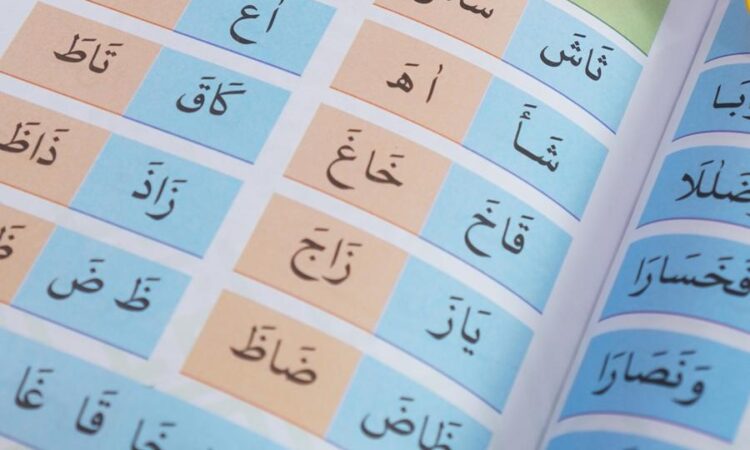 فَخَسَارَا
وَنَصَارَا
ثَاشَ
شَأَ اٰهَ
قَاخَ خَاغَ
يَازَ زَاجَ
ظَاضَ ضَاظَ
اٰعَ
كَاقَ تَاطَ
زَاذَ ذَاظَ
ظَ ضَ
خَا قَا غَا